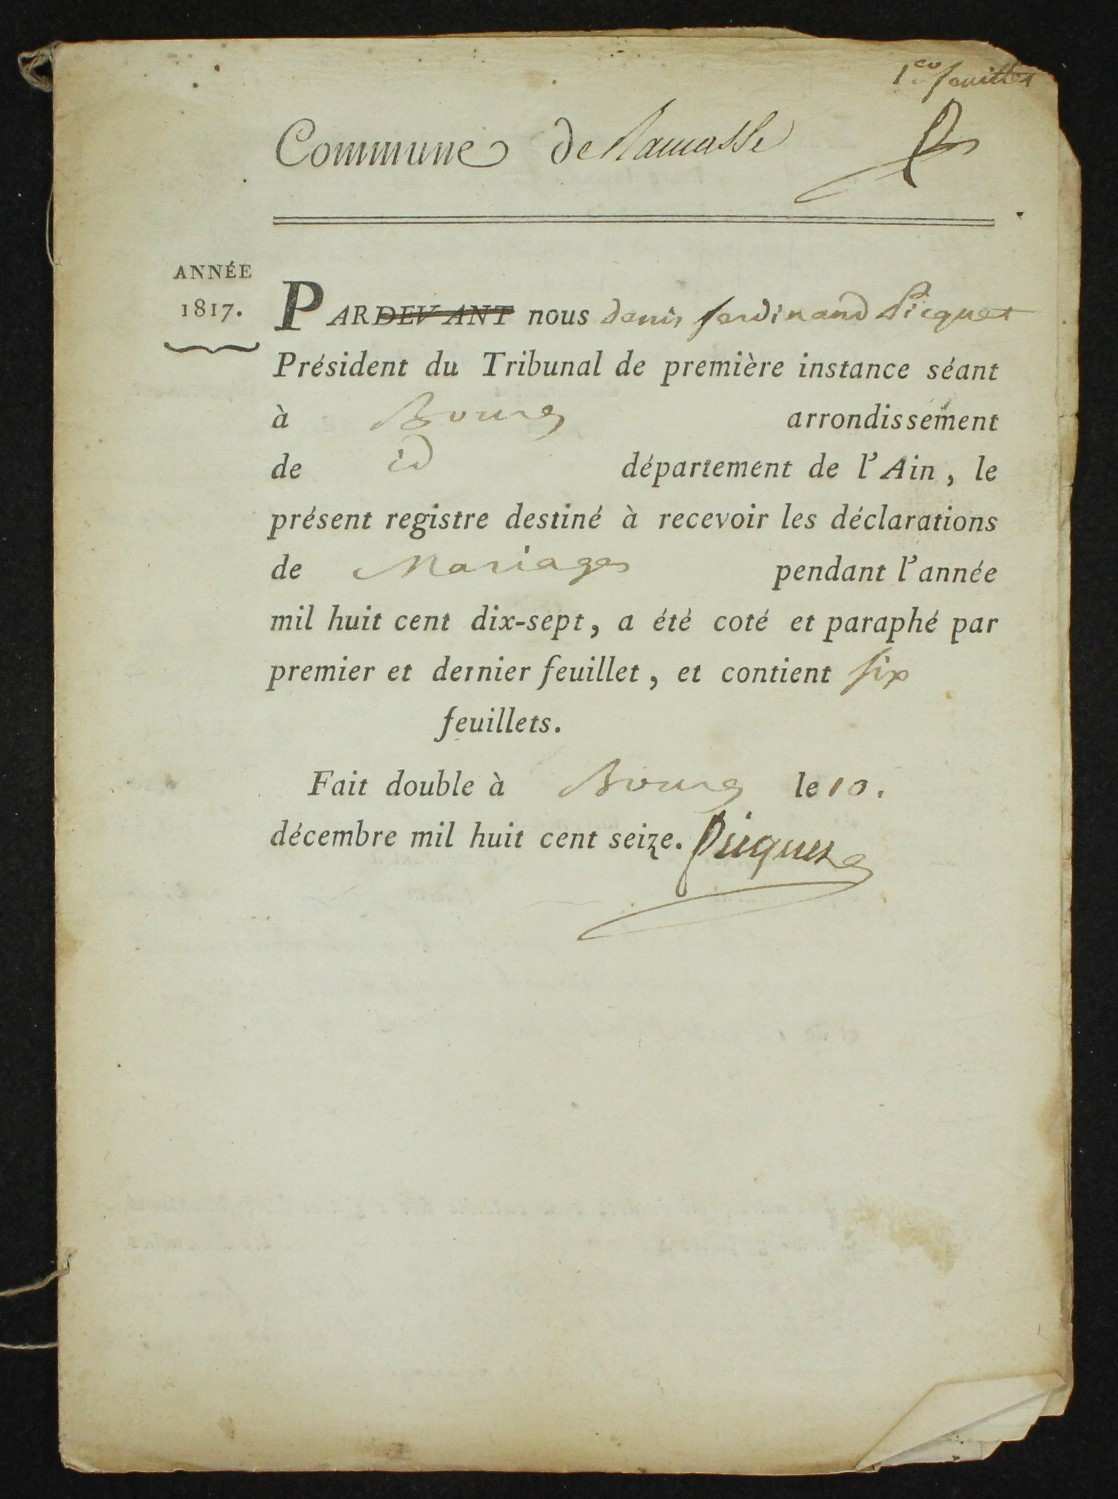 1er feuillet
Commune de Ramasse
ANNÉE
1817.
PARDEVANT nous denis ferdinand Picquet
Président du Tribunal de première instance séant
à Bourg arrondissement
de id département de l'Ain, le
présent registre destiné à recevoir les déclarations
de Mariages pendant l'année
mil huit cent dix-sept, a été coté et paraphé par
premier et dernier feuillet, et contient six
feuillets.
Fait double à Bourg le 10.
décembre mil huit cent seize. Picquet